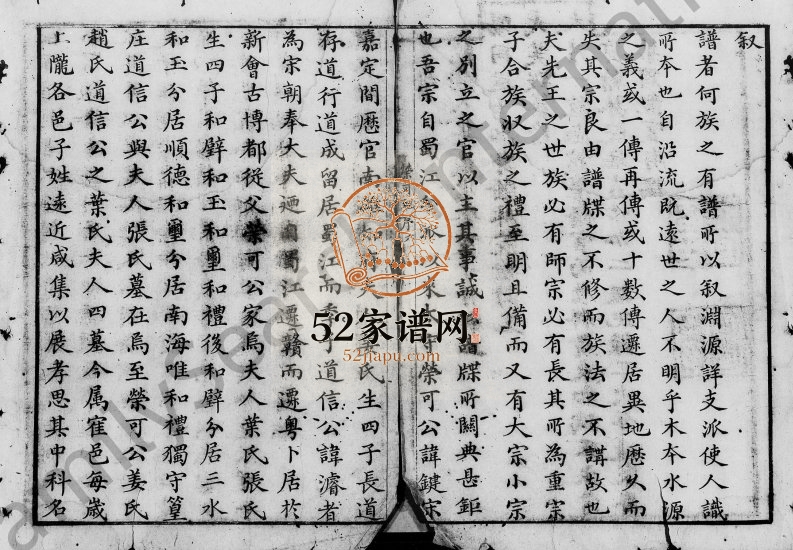 叙
譜者何族之有譜所以叙淵源詳支派使人識
所夲也自沿流既遠世之人不明乎木夲水源
之義或一傳再傳或十數傳遷居異地歷久而
失其宗良由譜牒之不修而族法之不講故也
夫先王之世族必有師宗必有長其所為重宗
子合族収族之禮至明且備而又有大宗小宗
之别立之官以主其事誠 譜牒所關典甚鉅
也吾宗自蜀江 派 榮可公諱鍵宋
嘉定間歷官南 知府夫 姜氏生四子長道
存道行道成留居蜀江而季子道信公諱濬者
為宋朝奉大夫迺自蜀江遷贛而遷粤卜居於
新會古博都從父榮可公家焉夫人葉氏張氏
生四子和璧和玉和璽和禮後和璧分居三水
和玉分居順德和璽分居南海唯和禮獨守篁
庄道信公與夫人張氏墓在焉至榮可公姜氏
趙氏道信公之葉氏夫人四墓今属寉邑每歲
上隴各邑子姓遠近咸集以展孝思其中科名
52家谱网
52jiapu.com